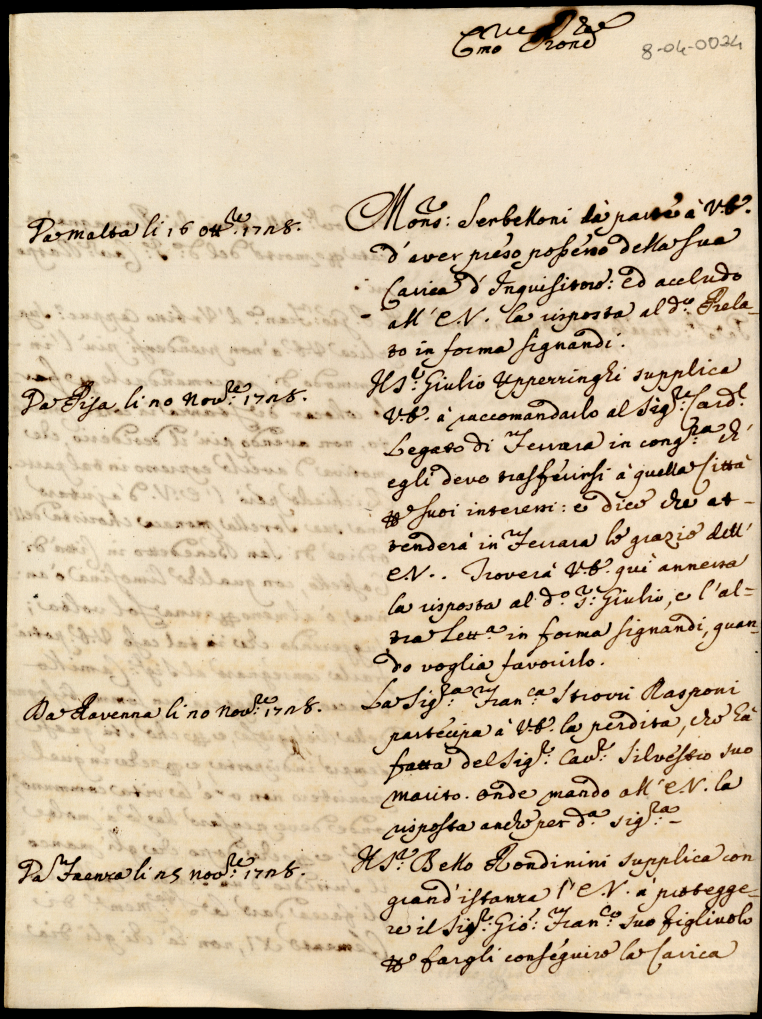 Em̃o Pron̄e
8-04-0024
Da Malta li 16 Ott.re 1728.
Mons.r: Serbelloni dà parte à V.E.
d'aver preso possesso della sua
Carica d'Inquisitore: ed accludo
all'E.V. la risposta al d.o Prela-
to in forma signandi.
Da Pisa li 20 Nov.re 1728.
Il S.r Giulio Upperringhi supplica
V.E. à raccomandarlo al Sig.r Card.l
Legato di Ferrara in cong.ra ch'
egli deve trasferirsi à quella Città
per suoi interessi: e dice che at-
tenderà in Ferrara le grazie dell'
E.V.. Troverà V.E. qui annessa
la risposta al d.o S.r Giulio, e l'al-
tra Lett.a in forma signandi, quan-
do voglia favorirlo.
Da Ravenna li 20 Nov.re 1728.
La Sig.ra Fran.ca Strozzi Rasponi
partecipa à V.E. la perdita, che hà
fatta del Sig.r Cav.r Silvestro suo
marito. onde mando all'E.V. la
risposta anche per d.a Sig.ra
Da Faenza li 25 Nov.re 1728.
Il S.r Bello Rondinini supplica con
grand'istanza l'E.V. à protegge-
re il Sig.r Gio: Fran.co suo figliuolo
per fargli conseguire la Carica